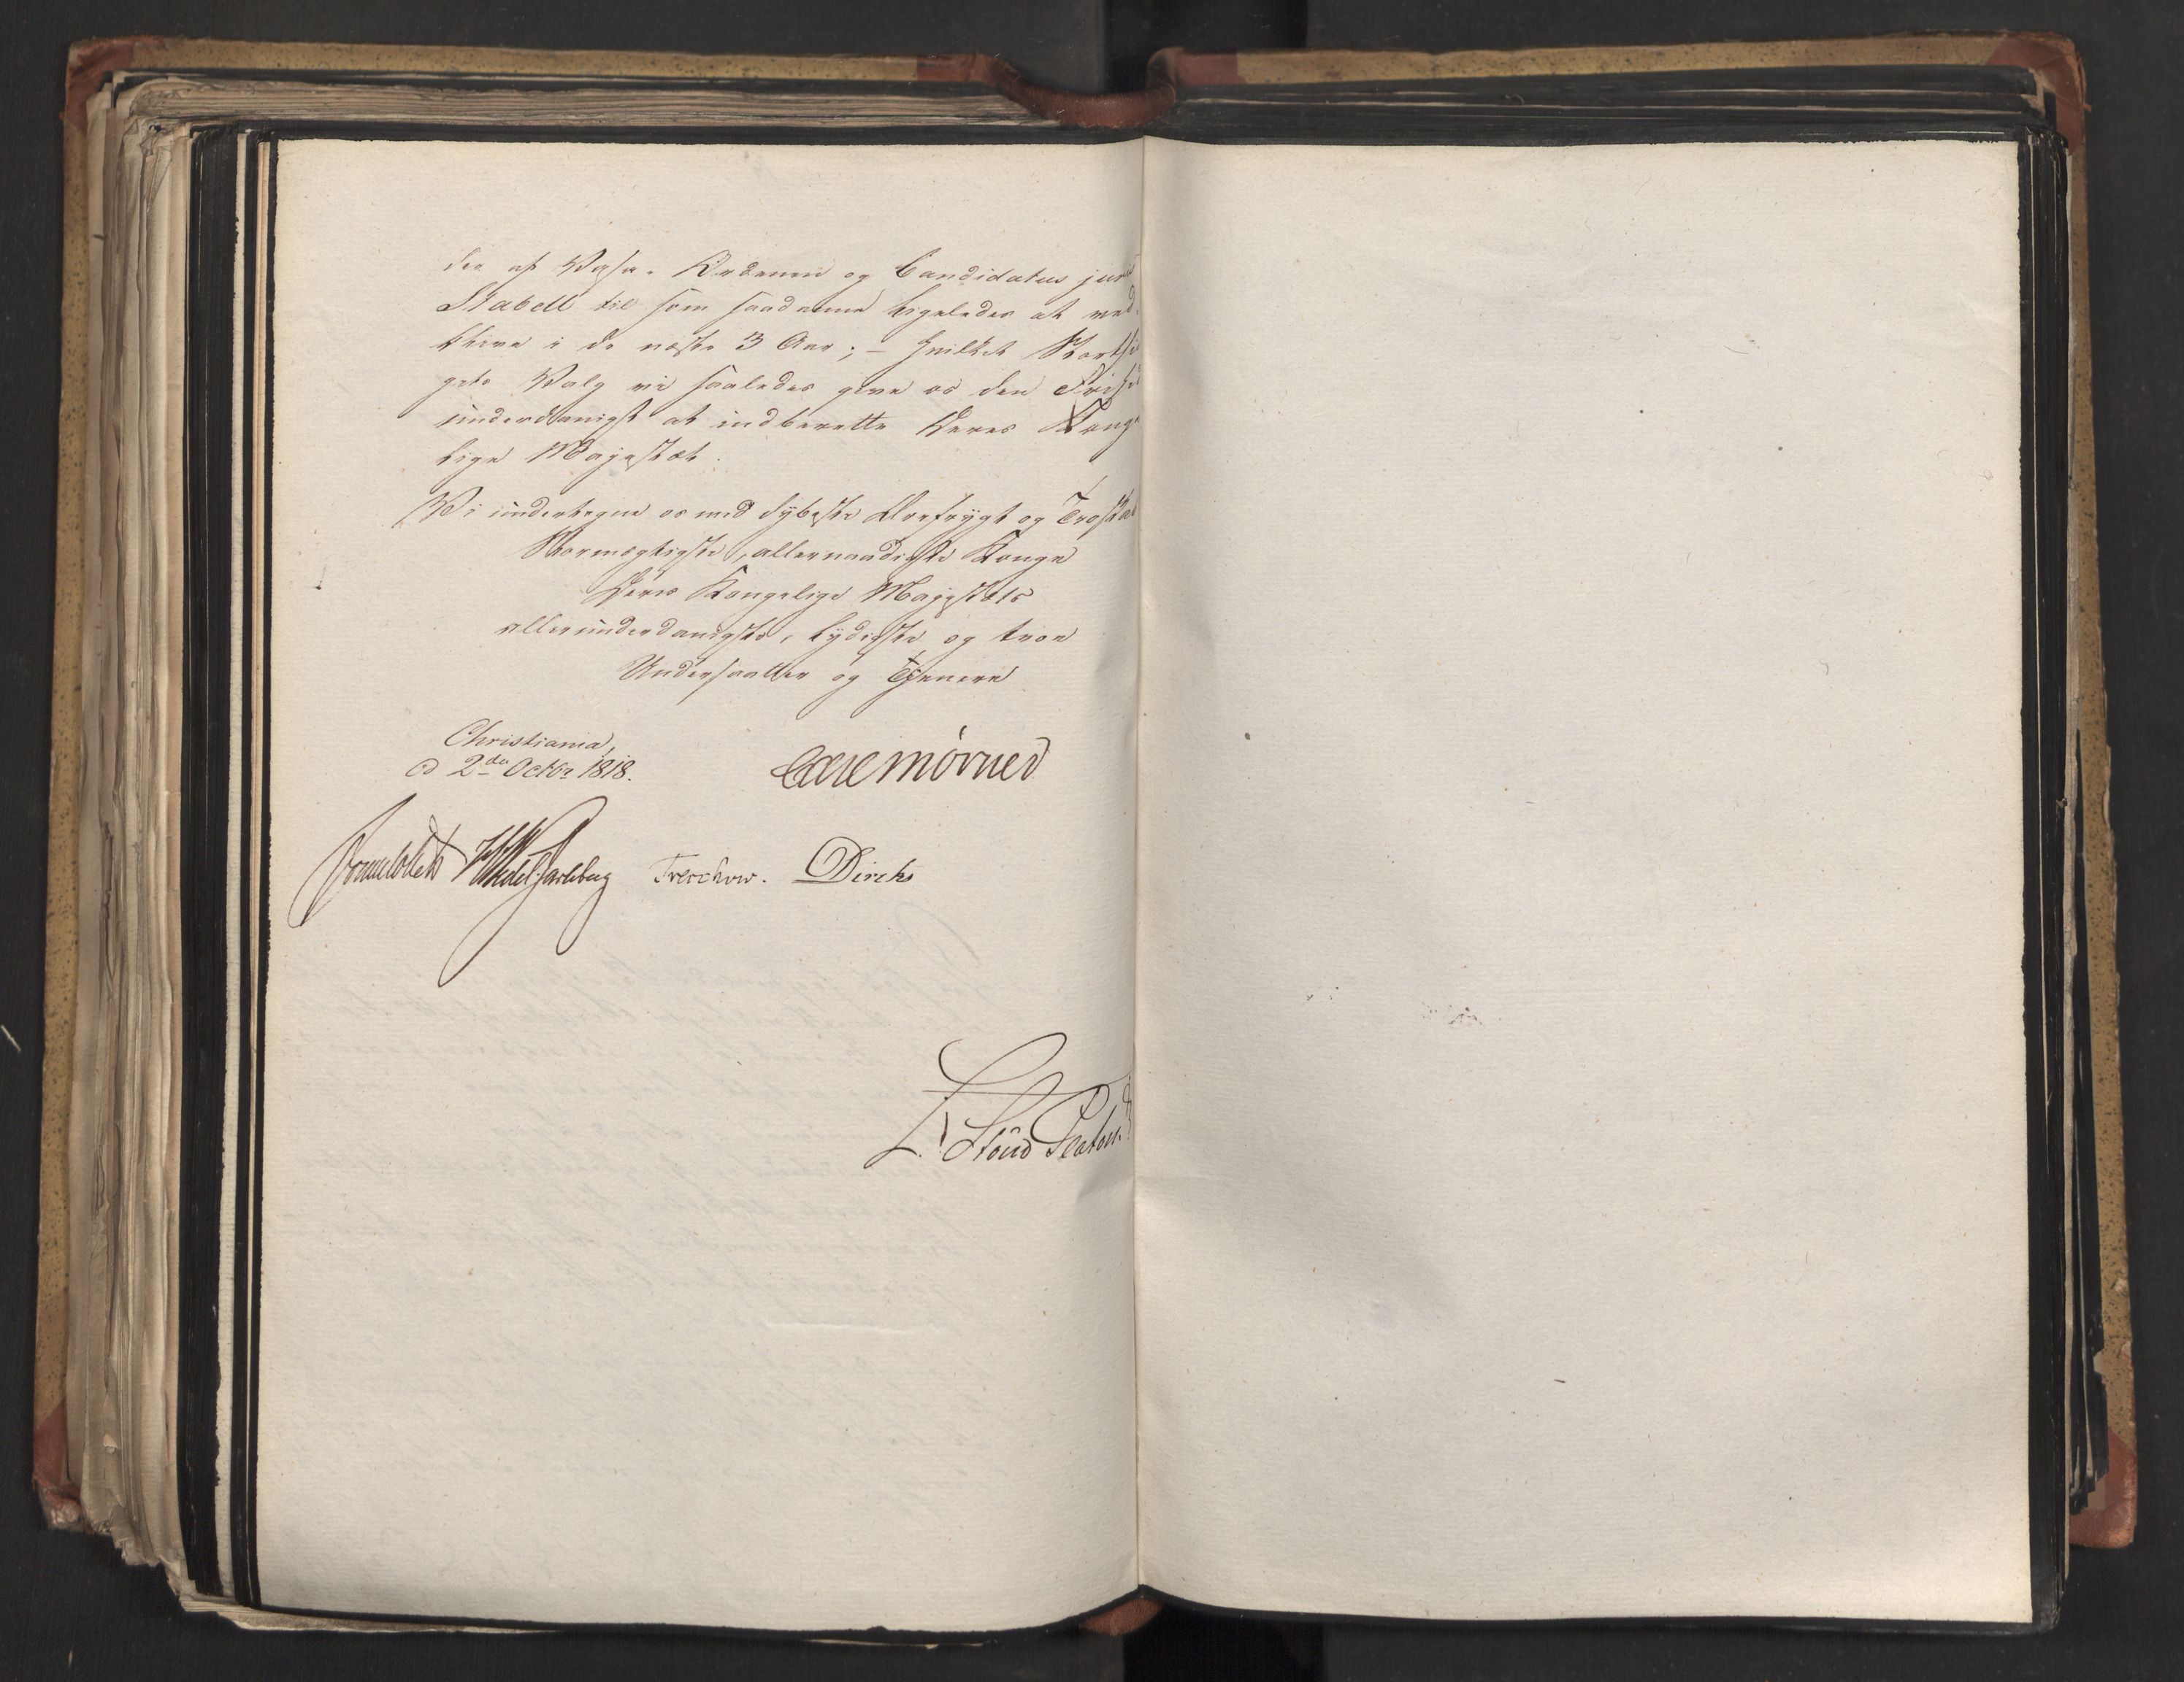 der af Vasa-Ordenen og Candidatus juris
Stabell til som saadanne ligeledes at ved-
blive i de næste 3 Aar; – hvilket Storthin
gets Valg vi saaledes give os den Frihed
underdanigst at indberette Deres Konge
lige Majestæt.
Vi undertegne os med dybeste Ærefrygt og Troskab
Stormægtigste, allernaadigste Konge
Deres Kongelige Majestæts
allerunderdanigste, lydigste og troe
Undersaatter og Tjenere
Christiania,
d 2de Octbr 1818.
Carl Mörner
Sommelhielm HWedelJarlsberg Treschow. Diriks
L. Stoud Platou